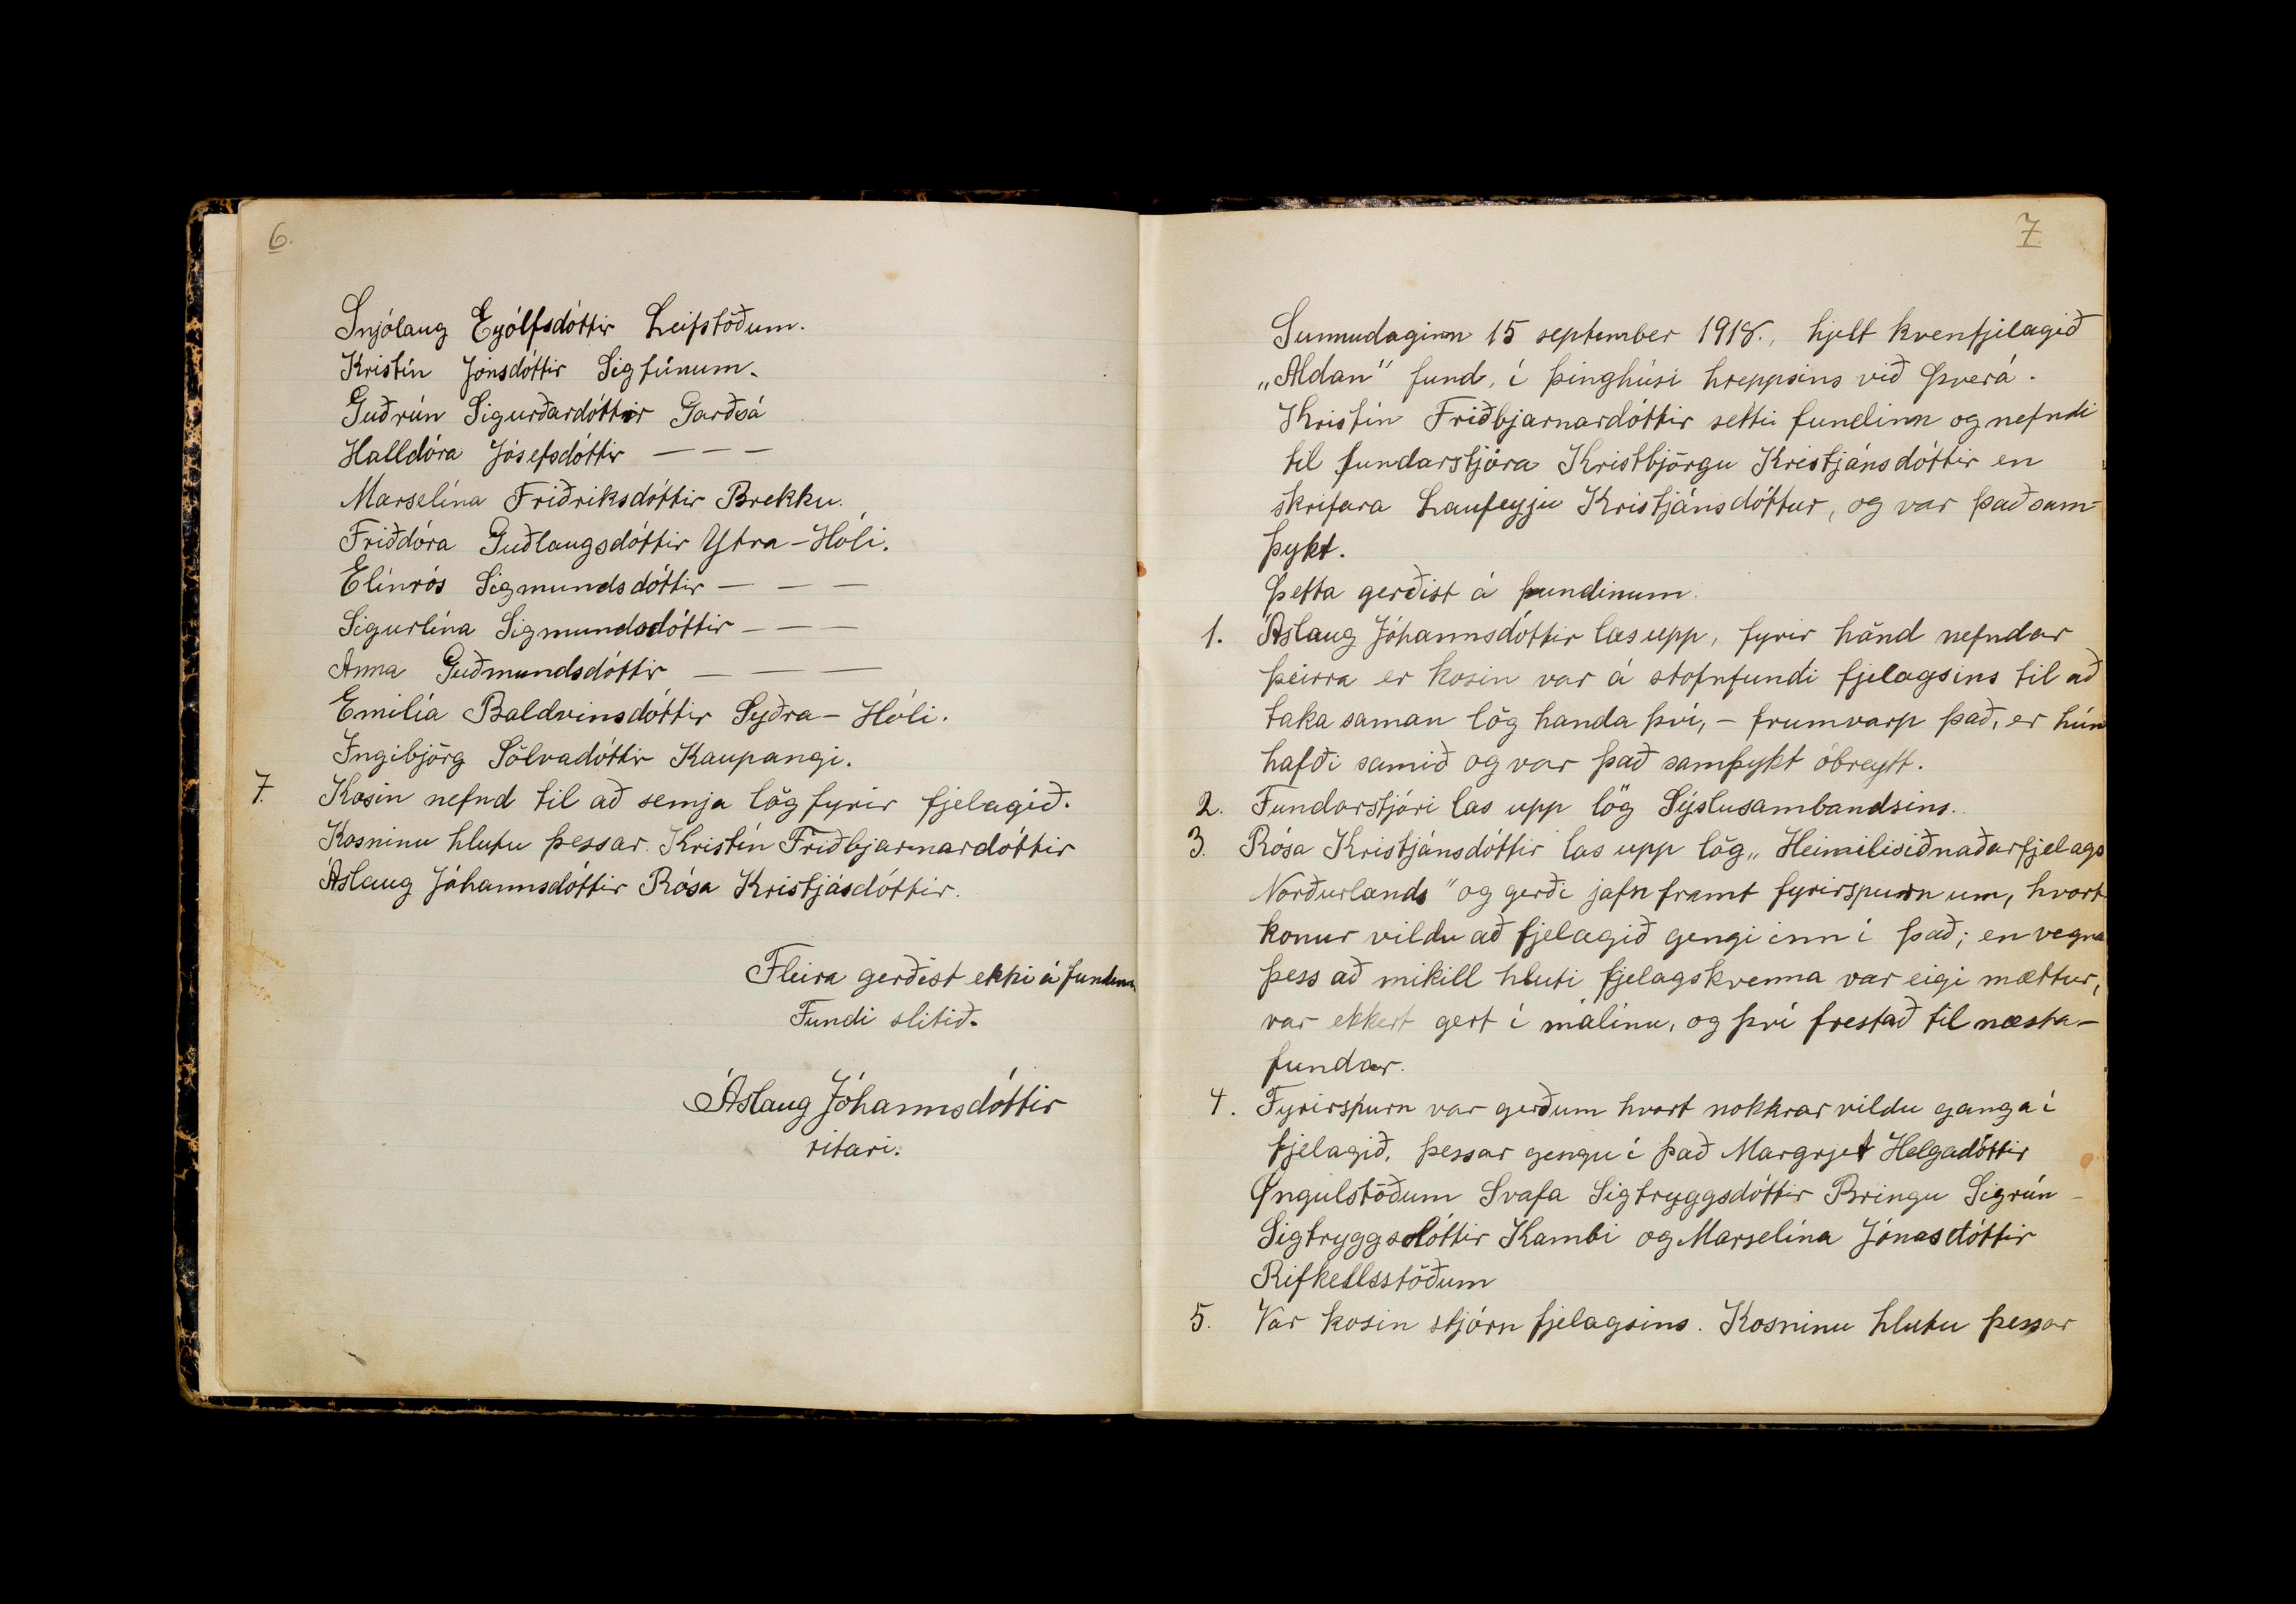 6.
Snjólaug Eyólfsdóttir Leifstöðum.
Kristín Jónsdóttir Sigtúnum.
Guðrún Sigurðardóttir Garðsá
Halldóra Jósefsdóttir — — —
Marselína Friðriksdóttir Brekku.
Friðdóra Guðlaugsdóttir Ytra-Hóli.
Elínrós Sigmundsdóttir — — —
Sigurlína Sigmundsdóttir — — —
Anna Guðmundsdóttir — — —
Emilía Baldvinsdóttir Syðra-Hóli.
Ingibjörg Sölvadóttir Kaupangi.
7. Kosin nefnd til að semja lög fyrir fjelagið.
Kosninu hlutu þessar. Kristín Friðbjarnardóttir
Áslaug Jóhannsdóttir Rósa Kristjásdóttir.
Fleira gerðist ekki á fundinum
Fundi slitið.
Áslaug Jóhannsdóttir
ritari.
7.
Sunnudaginn 15 september 1918., hjelt kvenfjelagið
„Aldan" fund, í þinghúsi hreppsins við Þverá.
Kristín Friðbjarnardóttir setti fundinn og nefndi
til fundarstjóra Kristbjörgu Kristjánsdóttir en
skrifara Laufeyju Kristjánsdóttur, og var það sam-
þykt.
Þetta gerðist á fundinum.
1. Áslaug Jóhannsdóttir las upp, fyrir hönd nefndar
þeirra er kosin var á stofnfundi fjelagsins til að
taka saman lög handa því, - frumvarp það, er hún
hafði samið og var það samþykt óbreytt.
2. Fundarstjóri las upp lög Sýslusambandsins.
3. Rósa Kristjánsdóttir las upp lög „Heimilisiðnaðarfjelags
Norðurlands" og gerði jafn framt fyrirspurn um, hvort
konur vildu að fjelagið gengi inn í það; en vegna
þess að mikill hluti fjelagskvenna var eigi mættur,
var ekkert gert í málinu, og því frestað til næsta-
fundar.
4. Fyrirspurn var gerðum hvort nokkrar vildu ganga í
fjelagið, þessar gengu í það Margrjet Helgadóttir
Öngulstöðum Svafa Sigtryggsdóttir Bringu Sigrún
Sigtryggsdóttir Kambi og Marselína Jónasdóttir
Rifkellsstöðum
5. Var kosin stjórn fjelagsins. Kosninu hlutu þessar